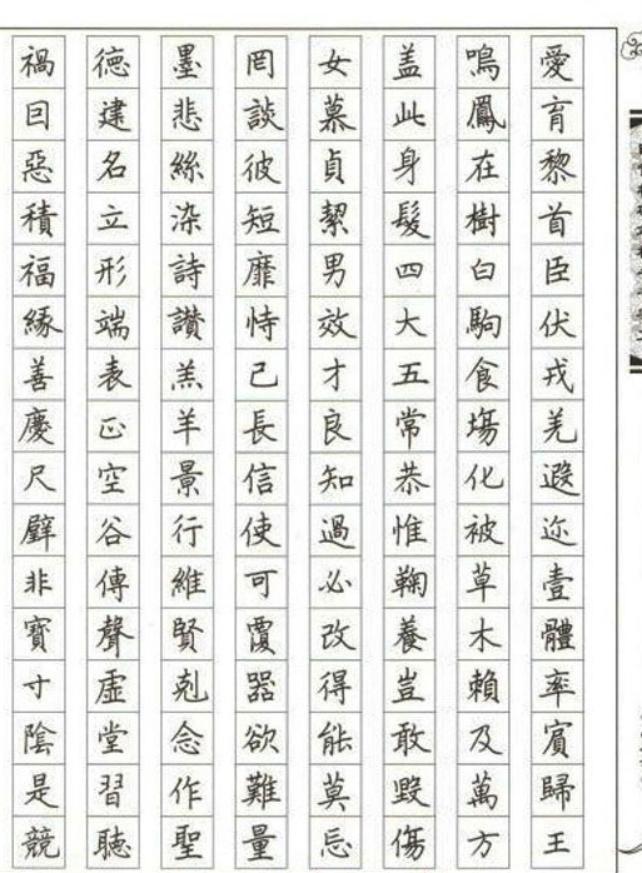 愛育黎首臣伏戎羌遐迩壹體率賓歸王
鳴鳳在樹白駒食場化被草木賴及萬方
盖此身髮四大五常恭惟鞠養豈敢毀傷
女慕貞絜男效才良知過必改得能莫忘
罔談彼短靡恃己長信使可覆器欲難量
墨悲絲染詩讚羔羊景行維賢剋念作聖
德建名立形端表正空谷傳聲虛堂習聽
禍因惡積福緣善慶尺璧非寶寸陰是競